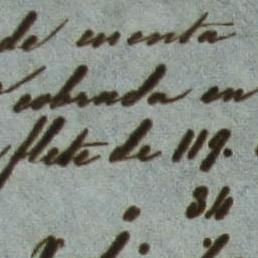 de cuenta
cobrada en
flete de 119.
34